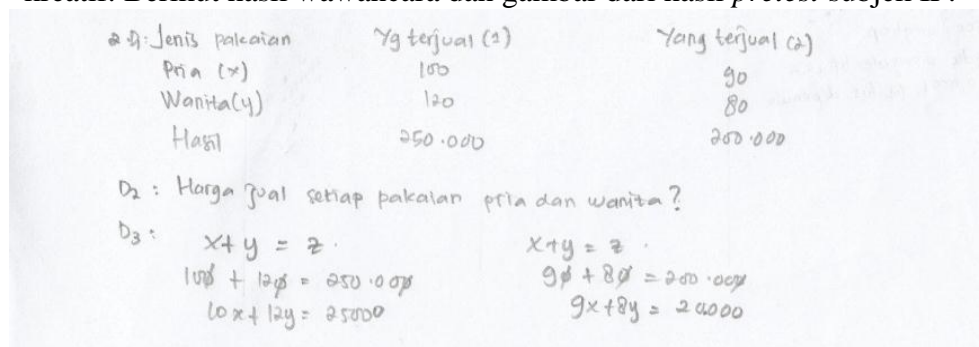 kreatif. Berikut hasil wawancara dan gambar dari hasil pretest subjek
2 D1: Jenis pakaian Yg terjual (1) Yang terjual (2)
Pria (x) 100 90
Wanita (y) 120 80
Hasil 250.000 200.000
D2 : Harga jual setiap pakaian pria dan wanita?
D3 :
x+y = z . x+y = z .
100 + 120 = 250.000 90 + 80 = 200.000
10x+12y = 25000 9x+8y = 20000